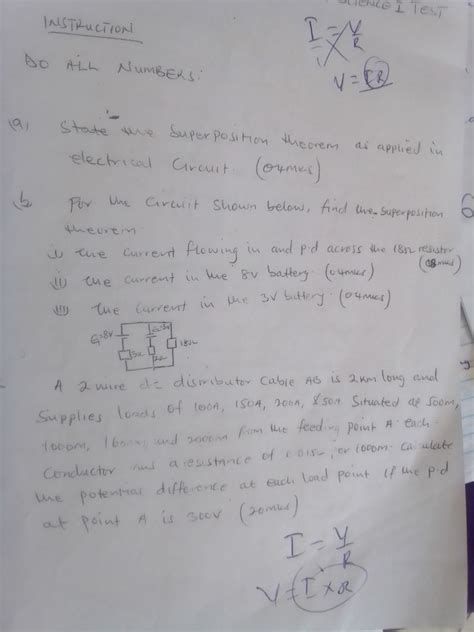 SCIENCE I TEST
INSTRUCTION
I = V/R
V = IR
DO ALL NUMBERS:
(a) State the Superposition theorem as applied in
electrical Circuit. (04mks)
(b) For the Circuit shown below, find the Superposition
theorem
i) the current flowing in and p.d across the 18Ω resistor
(08mks)
ii) the current in the 8V battery. (04mks)
iii) the current in the 3V battery. (04mks)
E=8V
18Ω
2Ω
A 2 wire dc distributor Cable AB is 2km long and
Supplies loads of 100A, 150A, 200A, & 50A Situated at 500m,
1000m, 1600m, and 2000m from the feeding point A. each
Conductor has a resistance of 0.01Ω, for 1000m. Calculate
the potential difference at each load point if the p.d
at point A is 300V (20mks)
I = V/R
V = I x R